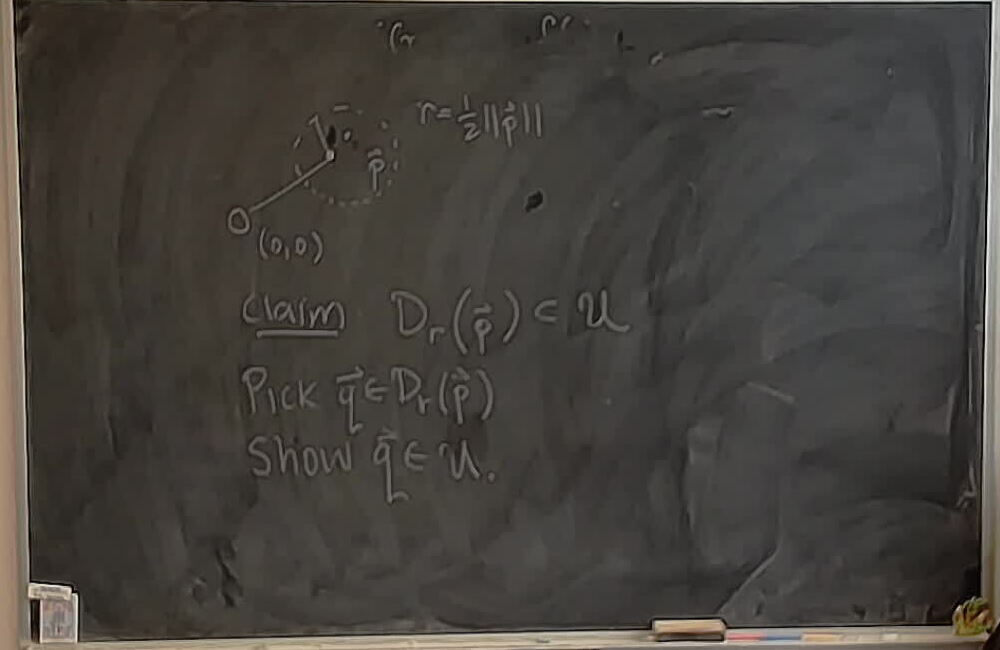 r = ½||p⃗||
p⃗
(0,0)
Claim Dᵣ(p⃗) ⊂ U
Pick q⃗ ∈ Dᵣ(p⃗)
Show q⃗ ∈ U.